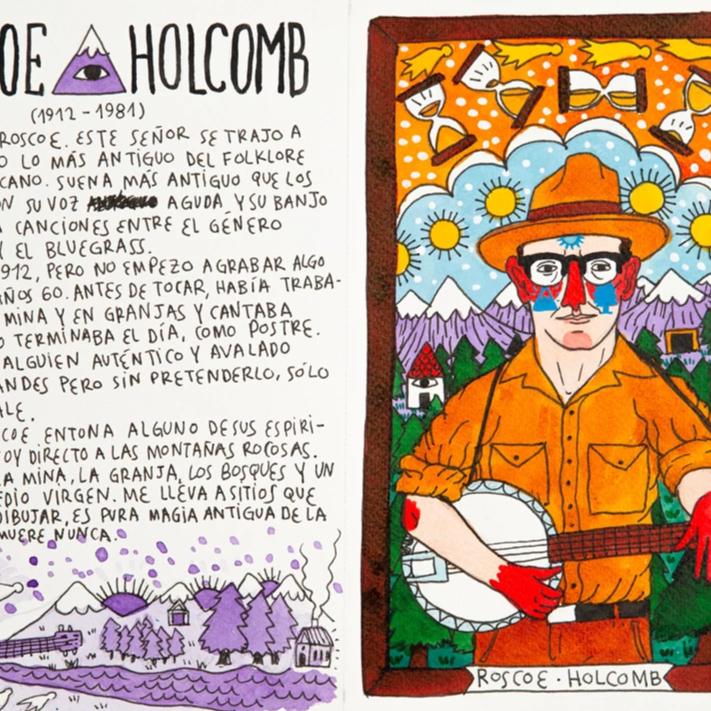 OE HOLCOMB
(1912-1981)
ROSCOE. ESTE SEÑOR SE TRAJO A
O LO MÁS ANTIGUO DEL FOLKLORE
CANO. SUENA MÁS ANTIGUO QUE LOS
N SU VOZ AGUDA Y SU BANJO
CANCIONES ENTRE EL GÉNERO
Y EL BLUEGRASS.
912, PERO NO EMPEZO A GRABAR ALGO
AÑOS 60. ANTES DE TOCAR, HABÍA TRABA-
MINA Y EN GRANJAS Y CANTABA
O TERMINABA EL DÍA, COMO POSTRE.
ALGUIEN AUTÉNTICO Y AVALADO
ANDES PERO SIN PRETENDERLO, SÓLO
ALE.
COE ENTONA ALGUNO DE SUS ESPIRI-
OY DIRECTO A LAS MONTAÑAS ROCOSAS.
A MINA, LA GRANJA, LOS BOSQUES Y UN
EDIO VIRGEN. ME LLEVA A SITIOS QUE
DIBUJAR, ES PURA MAGIA ANTIGUA DE LA
MUERE NUNCA.
ROSCOE · HOLCOMB